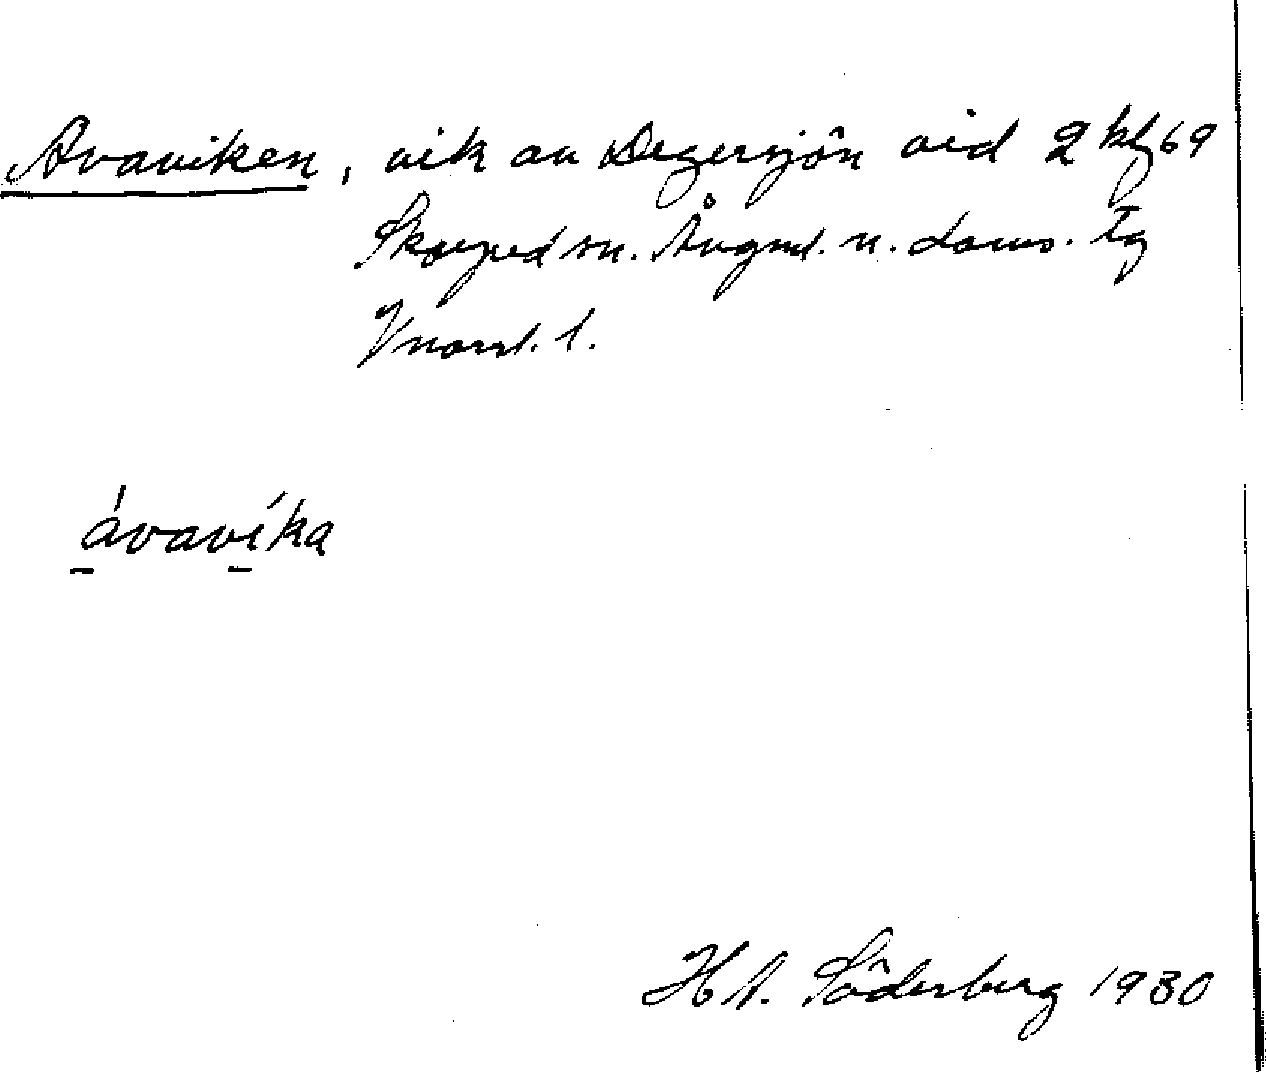 Avaviken, vik av Degersjön vid 2 kl 69
Skorped sn. Ångml. n. doms. Tg
Vnorrl. l.
ávavíka
H A. Söderberg 1930